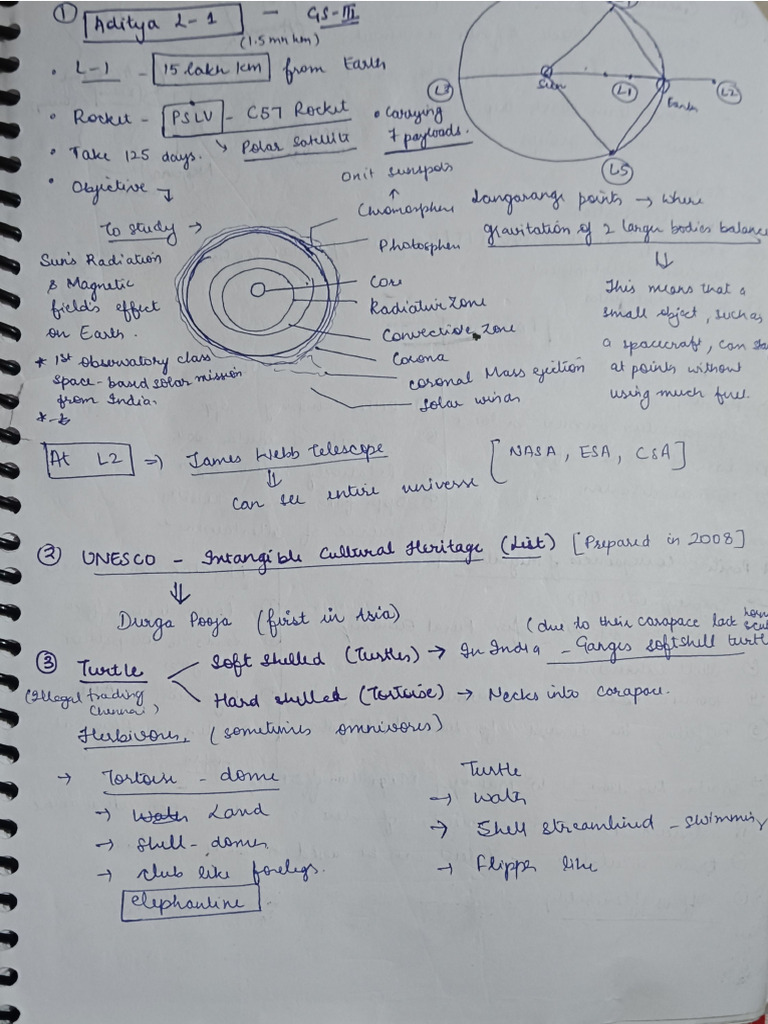 ① Aditya L-1 - GS-III
(1.5 mn km)
• L-1 - 15 lakh km from Earth
• Rocket - PSLV - C57 Rocket
• Carrying 7 payloads.
• Take 125 days. Polar Satellite
• Objective
L3 Sun L1 Earth L2
L5
To study →
Sun's Radiation
& Magnetic
field's effect
on Earth.
* 1st Observatory class
space-based solar mission
from India.
Omit sunspots
Chromosphere
Photosphere
Core
Radiative Zone
Convective Zone
Corona
Coronal Mass ejection
Solar winds
Langarange points → where
gravitation of 2 larger bodies balance
This means that a
small object, such as
a spacecraft, can
at points without
using much fuel.
At L2 => James Webb Telescope [NASA, ESA, CSA]
can see entire universe
② UNESCO - Intangible Cultural Heritage (List) [Prepared in 2008]
Durga Pooja (first in Asia)
(due to their carapace lack
③ Turtle
Soft shelled (Turtles) → In India - Ganges softshell turtle
Hard shelled (Tortoise) → Necks into carapace.
(Illegal trading
Chennai)
Herbivorous, (sometimes omnivores)
→ Tortoise - dome
→ Land
→ Shell - domes
→ club like forelegs.
elephantine
Turtle
→ Water
→ Shell streamlined - swimming
→ Flipper like